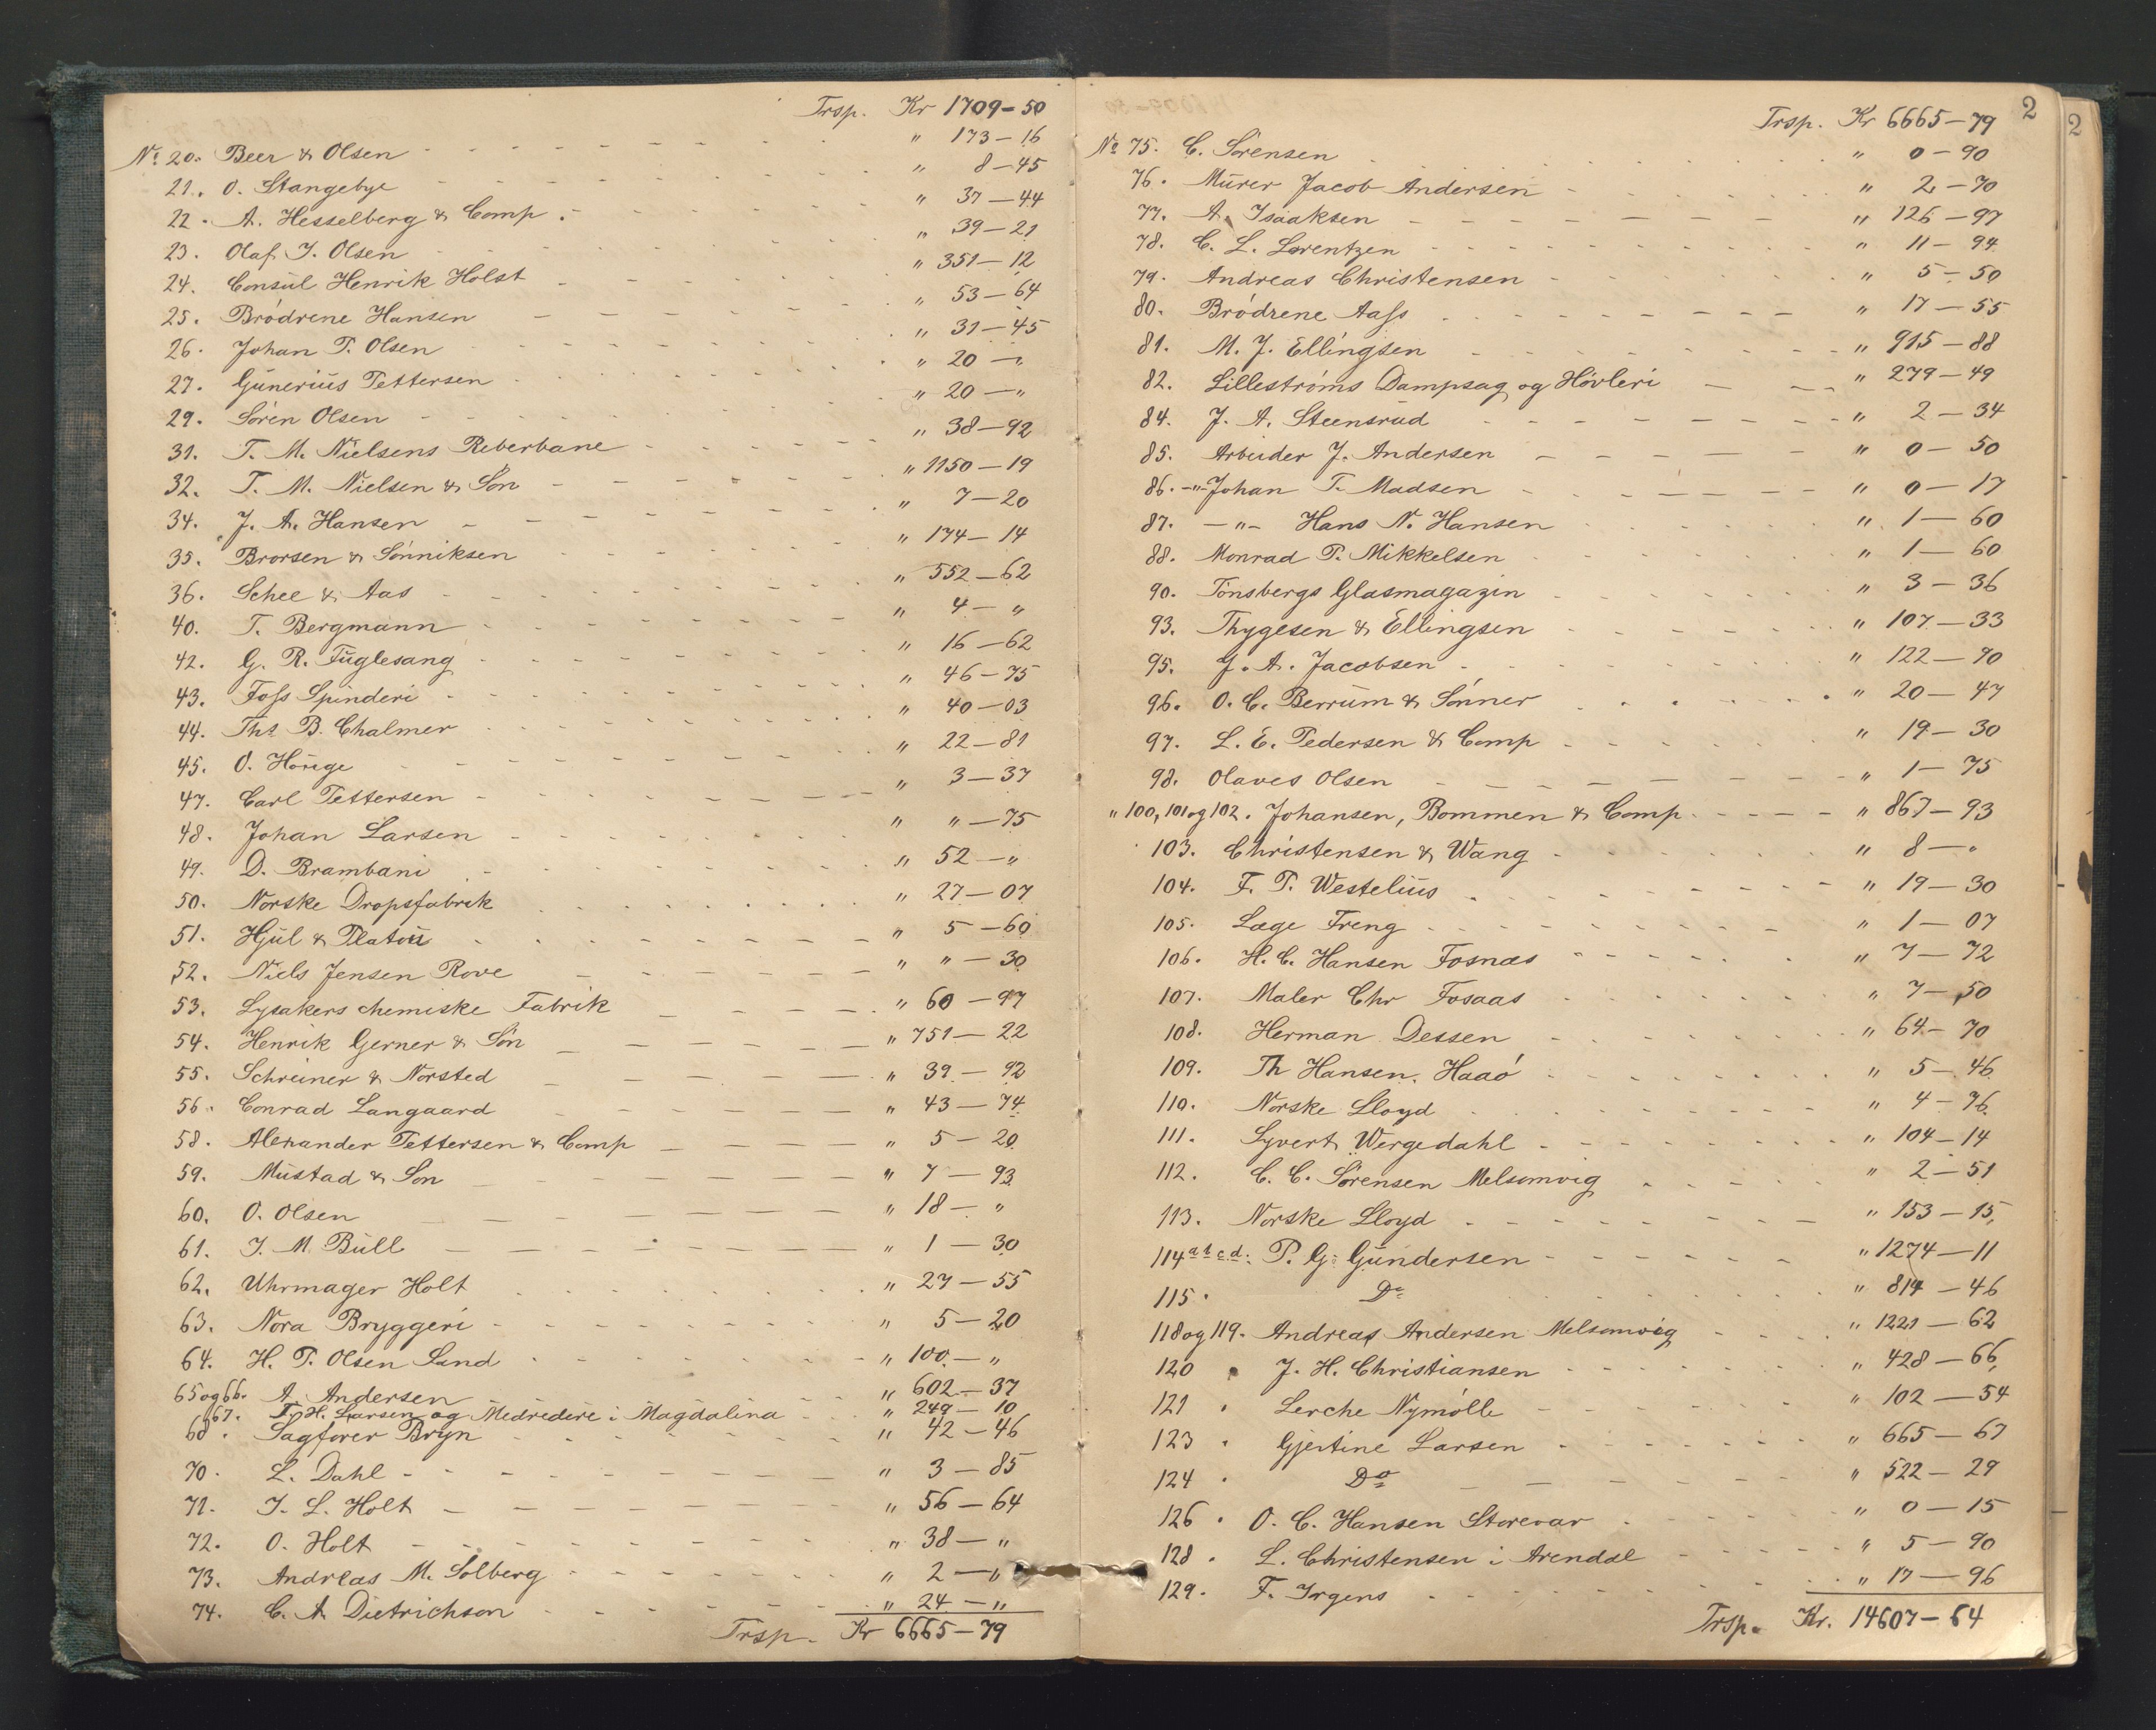 Trsp. Kr 1709-50
No 20. Beer & Olsen " 173-16
21. O. Stangebye " 8-45
22. A. Hesselberg & Comp. " 37-44
23. Olaf J. Olsen " 39-21
24. Consul Henrik Holst " 351-12
25. Brödrene Hansen " 53-64
26. Johan P. Olsen " 31-45
27. Gunerius Pettersen " 20-"
29. Sören Olsen " 20-"
31. T. M. Nielsens Reberbane " 38-92
32. T. M. Nielsen & Sön " 1150-19
34. J. A. Hansen " 7-20
35. Brorsen & Sönniksen " 174-14
36. Schee & Aas " 552-62
40. T. Bergmann " 4-"
42. G. R. Fuglesang " 16-62
43. Foss Spinderi " 46-75
44. Ths B. Chalmer " 40-03
45. O. Hörige " 22-81
47. Carl Pettersen " 3-37
48. Johan Larsen " "-75
49. D. Brambani " 52-"
50. Norske Dropsfabrik " 27-07
51. Hjul & Platou " 5-60
52. Niels Jensen Rove " "-30
53. Lysakers chemiske Fabrik " 60-97
54. Henrik Gerner & Sön " 751-22
55. Schreiner & Norsted " 39-92
56. Conrad Langaard " 43-74
58. Alexander Pettersen & Comp " 5-20
59. Mustad & Son " 7-93
60. O. Olsen " 18-"
61. J. M. Bull " 1-30
62. Uhrmager Holt " 27-55
63. Nora Bryggeri " 5-20
64. H. P. Olsen Sand " 100-"
65og66. A. Andersen " 602-37
67. H. Larsen og Medredere i Magdalina " 249-10
68. Sagförer Bryn " 42-46
70. L. Dahl " 3-85
71. J. L. Holt " 56-64
72. O. Holt " 38-"
73. Andreas M. Solberg " 2-"
74. C. A. Dietrichson " 24-"
Trsp. Kr 6665-79
2
2
Trsp. Kr 6665-79
No 75. C. Sörensen " 0-90
76. Murer Jacob Andersen " 2-70
77. A. Isaaksen " 126-97
78. C. L. Lorentzen " 11-94
79. Andreas Christensen " 5-50
80. Brödrene Aass " 17-55
81. M. J. Ellingsen " 915-88
82. Lilleströms Dampsag og Hövleri " 279-49
84. J. A. Steensrud " 2-34
85. Arbeider J. Andersen " 0-50
86. -"- Johan T. Madsen " 0-17
87. -"- Hans N. Hansen " 1-60
88. Monrad P. Mikkelsen " 1-60
90. Tönsbergs Glasmagazin " 3-36
93. Thygesen & Ellingsen " 107-33
95. J. A. Jacobsen " 122-90
96. O. C. Berrum & Sönner " 20-47
97. L. E. Pedersen & Comp " 19-30
98. Olaves Olsen " 1-75
" 100, 101og102. Johansen, Bommen & Comp. " 867-93
103. Christensen & Wang " 8-"
104. F. P. Westelius " 19-30
105. Læge Freng " 1-07
106. H. C. Hansen Fosnæs " 7-72
107. Maler Chr Fosaas " 7-50
108. Herman Dessen " 64-70
109. Th Hansen. Haaö " 5-46
110. Norske Lloyd " 4-76
111. Syvert Wergedahl " 104-14
112. C. C. Sörensen Melsomvig " 2-51
113. Norske Lloyd " 153-15
114 a b c d. P. G. Gundersen " 1274-11
115. Do " 814-46
118og119. Andreas Andersen Melsomvig " 1221-62
120. J. H. Christiansen " 428-66
121. Lerche Nymölle " 102-54
123. Gjertine Larsen " 665-67
124. Do " 522-29
126. O. C. Hansen Storevar " 0-15
128. L. Christensen i Arendal " 5-90
129. F. Irgens " 17-96
Trsp. Kr. 14607-64